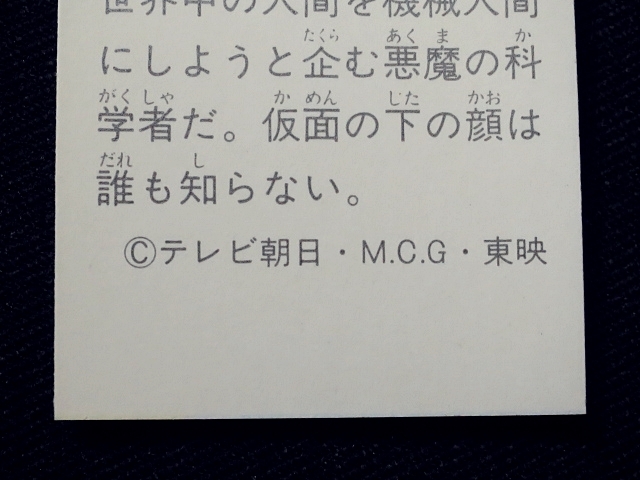 世界中の人間を機械人間
たくら あく ま か
にしようと企む悪魔の科
がく しゃ か めん じた かお
学者だ。仮面の下の顔は
だれ し
誰も知らない。
©テレビ朝日・M.C.G・東映